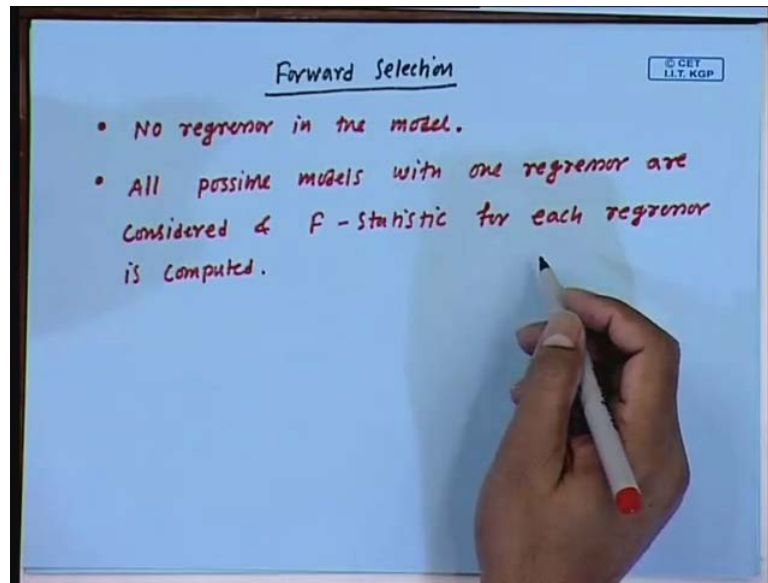 Forward Selection
© CET
I.I.T. KGP
• No regressor in the model.
• All possible models with one regressor are
considered & F-statistic for each regressor
is computed.